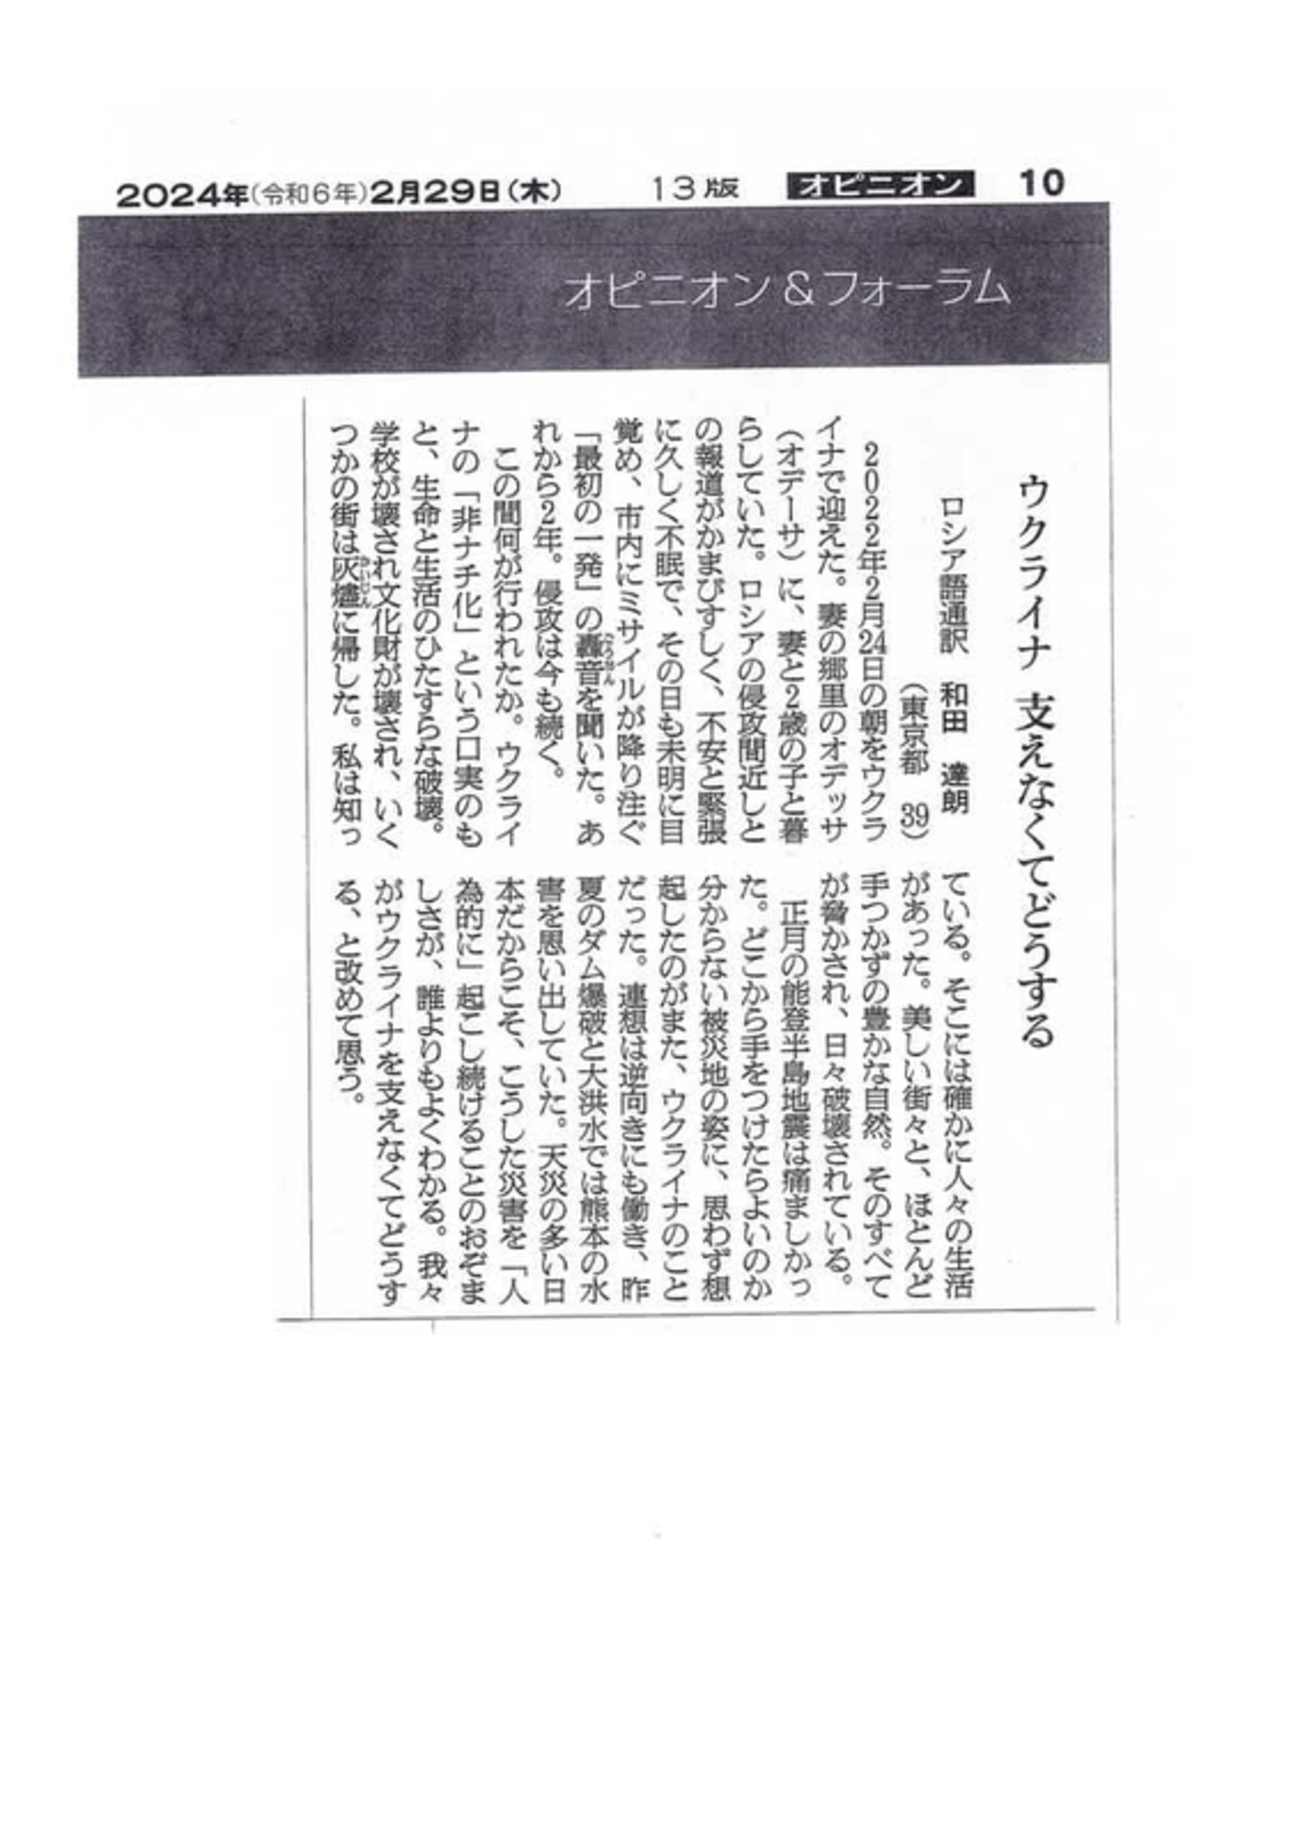 2024年(令和6年)2月29日(木) 13版 オピニオン 10
オピニオン&フォーラム
ウクライナ 支えなくてどうする
ロシア語通訳 和田 達朗
(東京都 39)
2022年2月24日の朝をウクラ
イナで迎えた。妻の郷里のオデッサ
(オデーサ)に、妻と2歳の子と暮
らしていた。ロシアの侵攻間近しと
の報道がかまびすしく、不安と緊張
に久しく不眠で、その日も未明に目
覚め、市内にミサイルが降り注ぐ
「最初の一発」の轟音を聞いた。あ
れから2年。侵攻は今も続く。
この間何が行われたか。ウクライ
ナの「非ナチ化」という口実のも
と、生命と生活のひたすらな破壊。
学校が壊され文化財が壊され、いく
つかの街は灰燼に帰した。私は知っ
ている。そこには確かに人々の生活
があった。美しい街々と、ほとんど
手つかずの豊かな自然。そのすべて
が脅かされ、日々破壊されている。
正月の能登半島地震は痛ましかっ
た。どこから手をつけたらよいのか
分からない被災地の姿に、思わず想
起したのがまた、ウクライナのこと
だった。連想は逆向きにも働き、昨
夏のダム爆破と大洪水では熊本の水
害を思い出していた。天災の多い日
本だからこそ、こうした災害を「人
為的に」起こし続けることのおぞま
しさが、誰よりもよくわかる。我々
がウクライナを支えなくてどうす
る、と改めて思う。